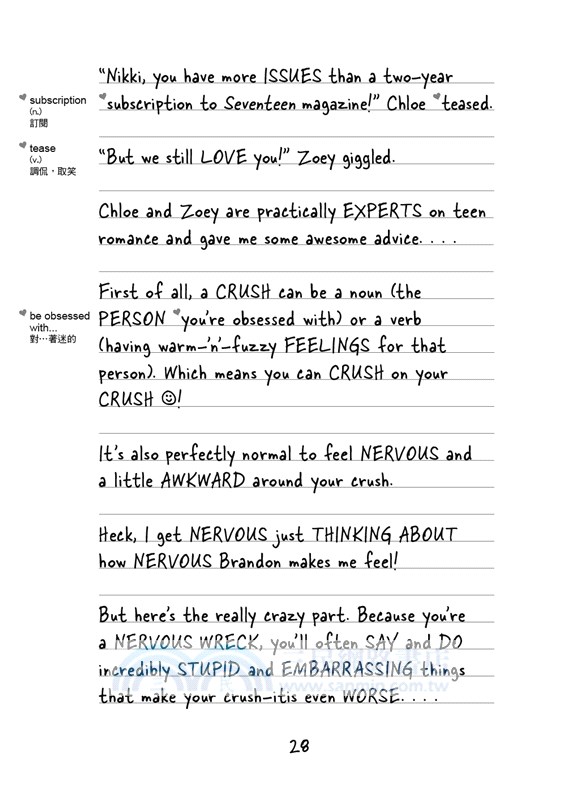 "Nikki, you have more ISSUES than a two-year
subscription to Seventeen magazine!" Chloe teased.
subscription
(n.)
訂閱
tease
(v.)
調侃，取笑
"But we still LOVE you!" Zoey giggled.
Chloe and Zoey are practically EXPERTS on teen
romance and gave me some awesome advice. . . .
First of all, a CRUSH can be a noun (the
PERSON you're obsessed with) or a verb
(having warm-'n'-fuzzy FEELINGS for that
person). Which means you can CRUSH on your
CRUSH ☺!
be obsessed
with...
對…著迷的
It's also perfectly normal to feel NERVOUS and
a little AWKWARD around your crush.
Heck, I get NERVOUS just THINKING ABOUT
how NERVOUS Brandon makes me feel!
But here's the really crazy part. Because you're
a NERVOUS WRECK, you'll often SAY and DO
incredibly STUPID and EMBARRASSING things
that make your crush-itis even WORSE. . . .
www.sanmin.com.tw
28